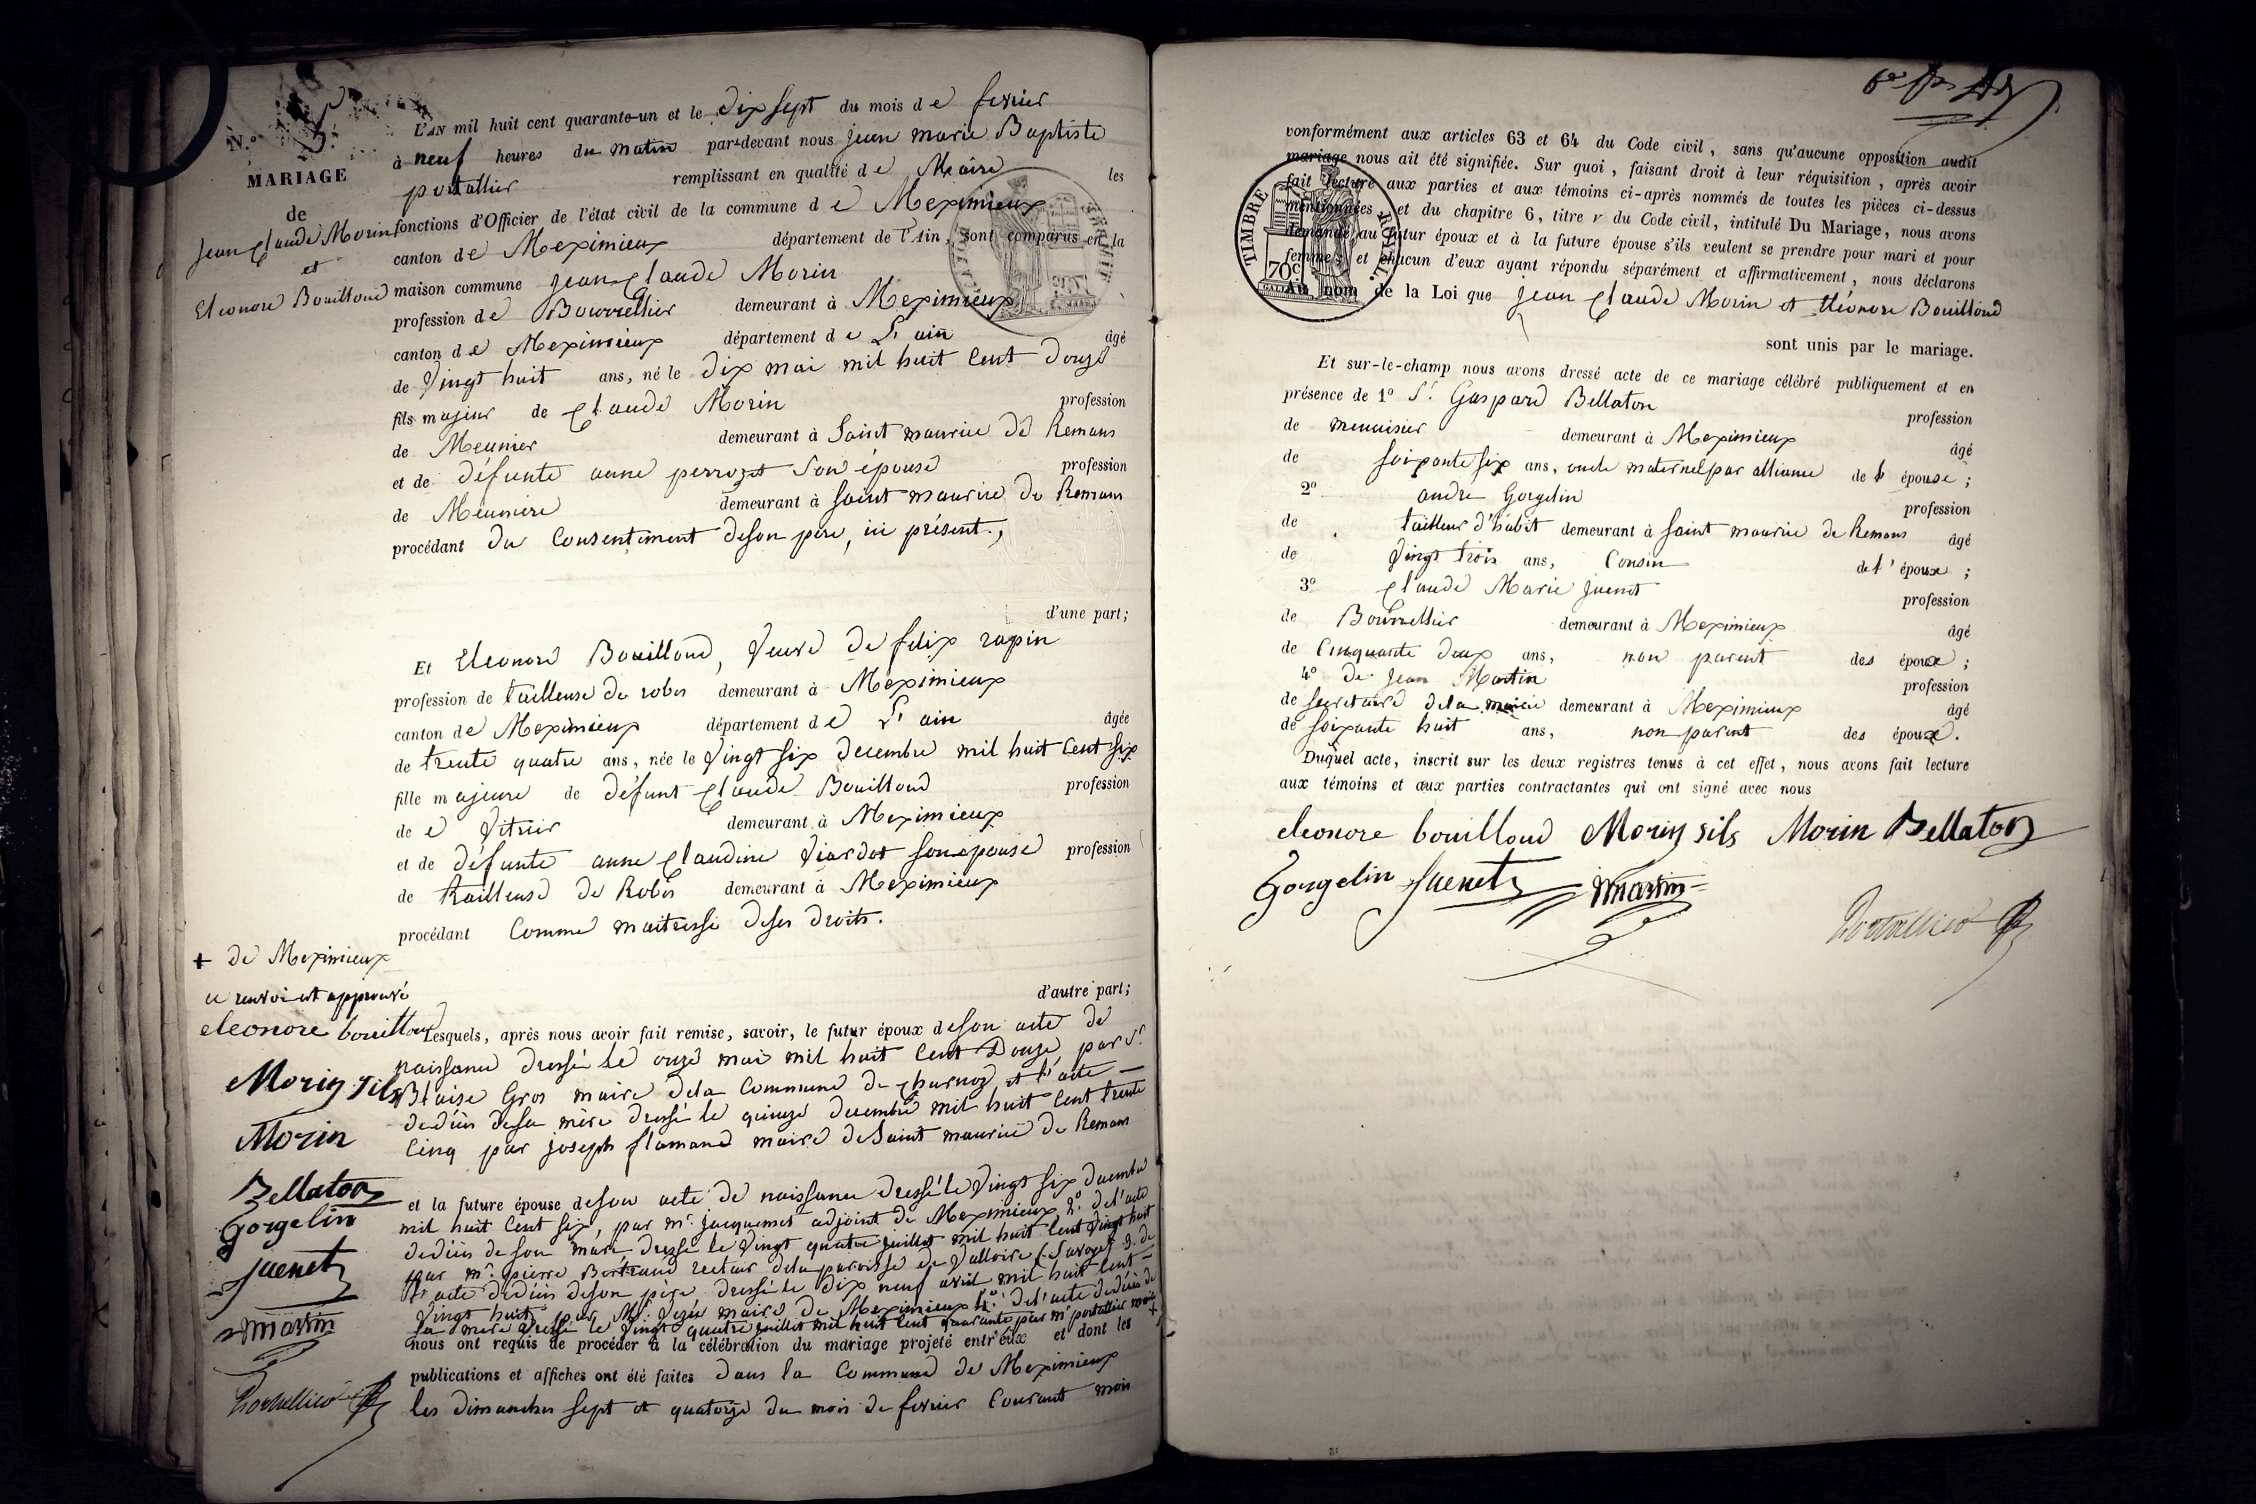 N.o 5.
MARIAGE
de
Jean Claude Morin
et
Eleonore Bouilloud
L'AN mil huit cent quarante-un et le dix sept du mois de fevrier
à neuf heures du matin par-devant nous jean marie Baptiste
portallier remplissant en qualité de Maire les
fonctions d'Officier de l'état civil de la commune de Meximieux
canton de Meximieux département de l'Ain, sont comparus en la
maison commune jean Claude Morin
profession de Bourrellier demeurant à Meximieux
canton de Meximieux département de L'ain âgé
de vingt huit ans, né le dix mai mil huit cent douze
fils majeur de Claude Morin profession
de Meunier demeurant à Saint maurice de Remans
et de défunte anne perrozet son épouse profession
de Meuniere demeurant à Saint maurice de Remans
procédant du Consentement de son père, ici présent.,
d'une part;
Et Eleonore Bouilloud, veuve de felix rapin
profession de tailleuse de robes demeurant à Meximieux
canton de Meximieux département de L'ain âgée
de trente quatre ans, née le vingt six decembre mil huit cent six
fille majeure de défunt Claude Bouilloud profession
de Vitrier demeurant à Meximieux
et de défunte anne Claudine Viardot son épouse profession
de tailleuse de Robes demeurant à Meximieux
procédant Comme maitresse de ses droits.
+ de Meximieux
ce renvoi est approuvé
eleonore bouilloud
Morin fils
Morin
Bellaton
Gorgelin
Juenet
Martin
Portallier
d'autre part;
Lesquels, après nous avoir fait remise, savoir, le futur époux de son acte de
naissance dressé le onze mai mil huit cent Douze, par Sr.
Blaise Gros maire de la Commune de Charnoz et l'acte
de décès de sa mère dressé le quinze decembre mil huit cent trente
cinq par joseph flamand maire de Saint maurice de Remans
et la future épouse de son acte de naissance dressé le vingt six decembre
mil huit cent six, par mr. jacquemet adjoint de Meximieux, 2o. de l'acte
de décès de son mari dressé le vingt quatre juillet mil huit cent vingt huit
par mr. pierre Bertrand recteur de la paroisse de Valloire (Savoye) 3. de
l'acte de décès de son père dressé le dix neuf avril mil huit cent
vingt huit, par Mr. maire de Meximieux 4o. de l'acte de décès de
sa mère dressé le vingt quatre juillet mil huit cent quarante par mr portallier maire +
nous ont requis de procéder à la célébration du mariage projeté entr'eux et dont les
publications et affiches ont été faites dans la Commune de Meximieux
les dimanches sept et quatorze du mois de fevrier Courant mois
conformément aux articles 63 et 64 du Code civil, sans qu'aucune opposition audit
mariage nous ait été signifiée. Sur quoi, faisant droit à leur réquisition, après avoir
fait lecture aux parties et aux témoins ci-après nommés de toutes les pièces ci-dessus
mentionnées, et du chapitre 6, titre v du Code civil, intitulé Du Mariage, nous avons
demandé au futur époux et à la future épouse s'ils veulent se prendre pour mari et pour
femme; et chacun d'eux ayant répondu séparément et affirmativement, nous déclarons
Au nom de la Loi que jean Claude Morin et Eléonore Bouilloud
sont unis par le mariage.
TIMBRE ROYAL.
70c
Et sur-le-champ nous avons dressé acte de ce mariage célébré publiquement et en
présence de 1o Sr. Gaspard Bellaton profession
de menuisier demeurant à Meximieux âgé
de soixante six ans, oncle maternel par alliance de l'épouse;
2o andre Gorgelin profession
de tailleur d'habit demeurant à Saint maurice de Remans âgé
de vingt trois ans, Cousin de l'époux;
3o Claude Marie juenet profession
de Bourrellier demeurant à Meximieux âgé
de Cinquante deux ans, non parent des époux;
4o de Jean Martin profession
de secretaire de la mairie demeurant à Meximieux âgé
de soixante huit ans, non parent des époux.
Duquel acte, inscrit sur les deux registres tenus à cet effet, nous avons fait lecture
aux témoins et aux parties contractantes qui ont signé avec nous
eleonore bouilloud Morin fils Morin Bellaton
Gorgelin Juenet Martin
Portallier